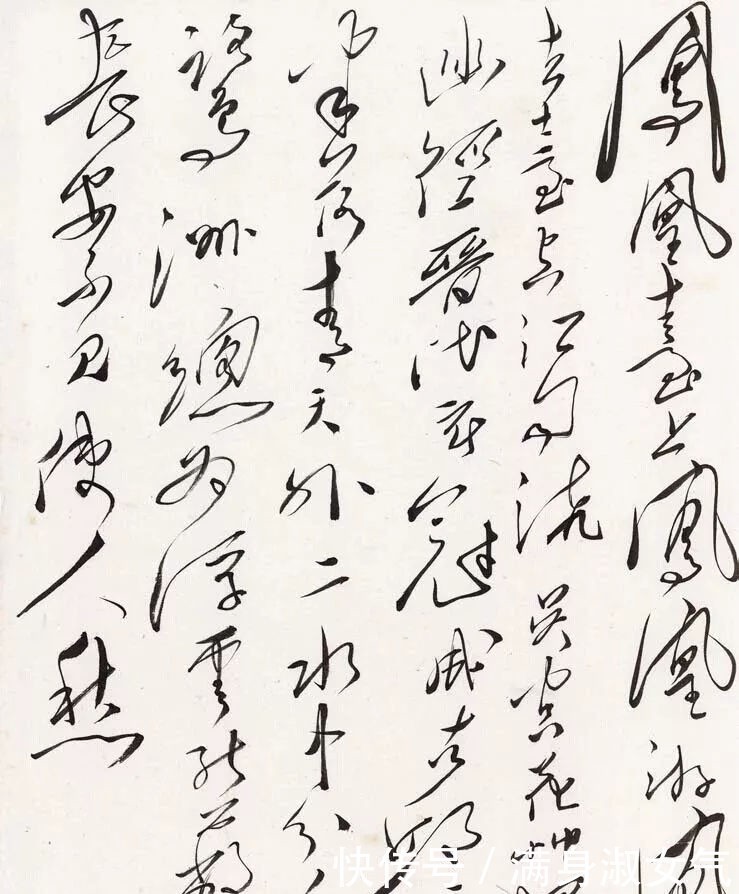 鳳凰臺上鳳凰游鳳
去臺空江自流吳宮花草埋
幽徑晉代衣冠成古邱三
山半落青天外二水中分白
鷺洲總為浮雲能蔽
長安不見使人愁
快传号/满身淑女气